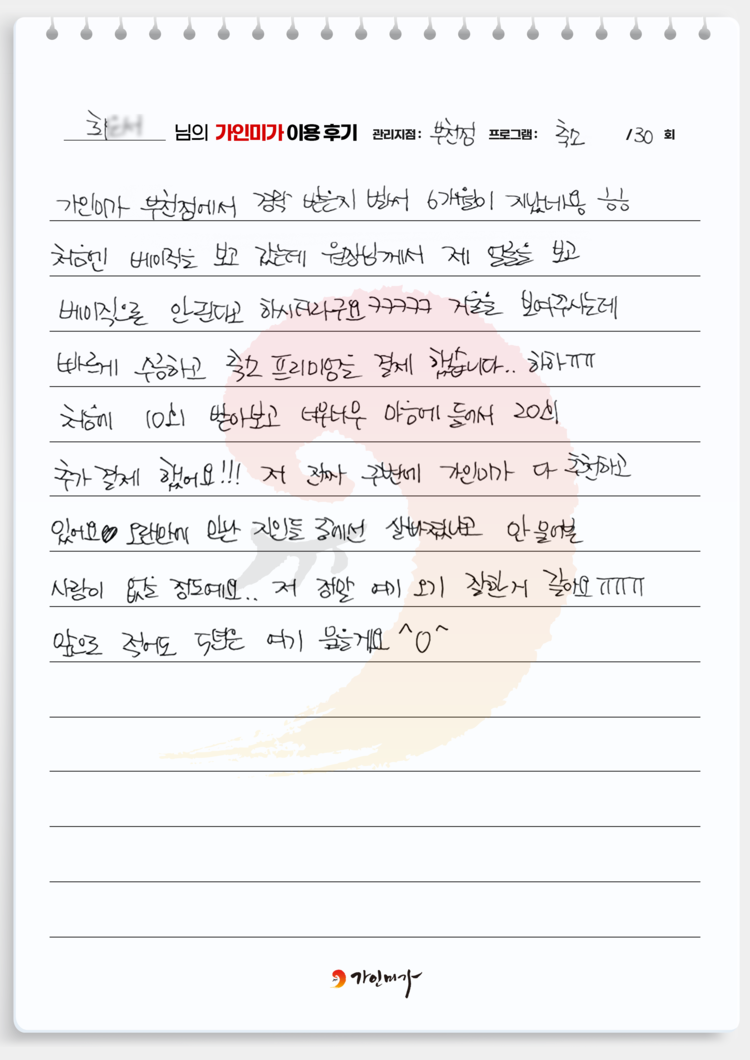 최 님의 가인미가 이용 후기 관리지점 : 부천점 프로그램 : 축소 /30 회
가인미가 부천점에서 경락 받은지 벌써 6개월이 지났네용 ㅎㅎ
처음엔 베이직을 보고 갔는데 원장님께서 제 얼굴을 보고
베이직으로 안된다고 하시더라구요ㅋㅋㅋㅋㅋ 거울을 보여주시는데
빠르게 수긍하고 축소 프리미엄을 결제 했습니다.. 하하ㅠㅠ
처음에 10회 받아보고 너무너무 마음에 들어서 20회
추가 결제 했어요!!! 저 진짜 주변에 가인미가 다 추천하고
있어요♥ 오랜만에 만난 지인들 중에선 살빠졌냐고 안 물어본
사람이 없을 정도예요.. 저 정말 여기 오기 잘한거 같아요ㅠㅠㅠㅠ
앞으로 적어도 5년은 여기 뭍을게요 ^O^
가인미가